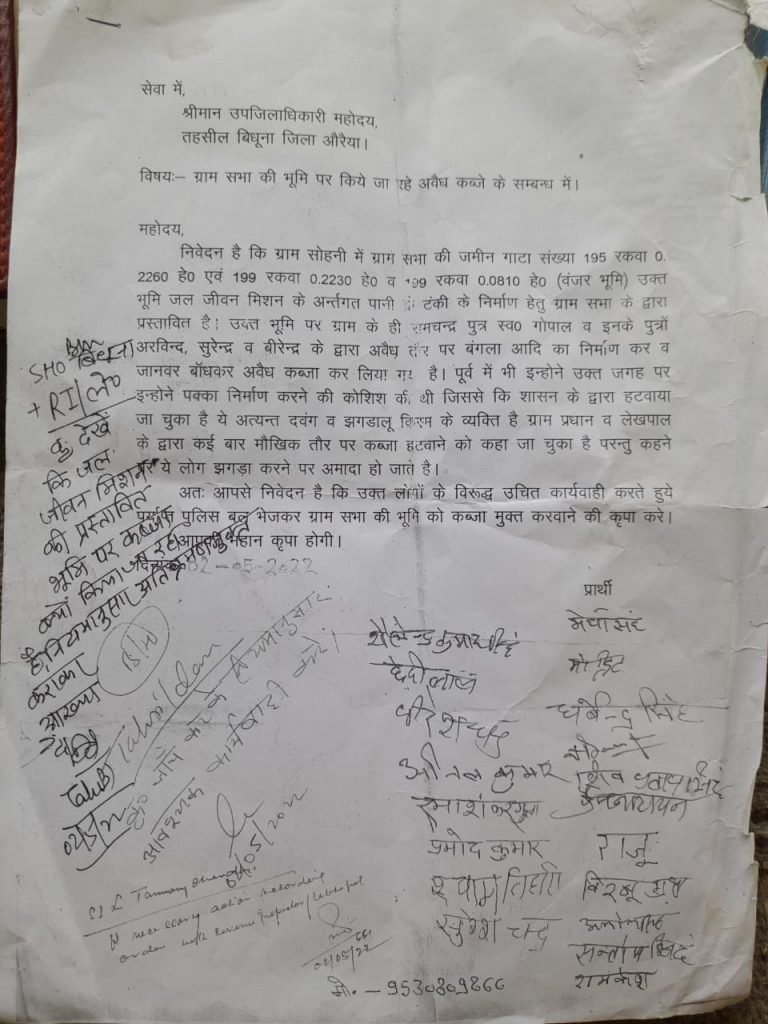 सेवा में,
श्रीमान उपजिलाधिकारी महोदय,
तहसील बिधूना जिला औरैया।
विषयः– ग्राम सभा की भूमि पर किये जा रहे अवैध कब्जे के सम्बन्ध में।
महोदय,
निवेदन है कि ग्राम सोहनी में ग्राम सभा की जमीन गाटा संख्या 195 रकवा 0.
2260 हे0 एवं 199 रकवा 0.2230 हे0 व 199 रकवा 0.0810 हे0 (वंजर भूमि) उक्त
भूमि जल जीवन मिशन के अर्न्तगत पानी टंकी के निर्माण हेतु ग्राम सभा के द्वारा
प्रस्तावित है। उक्त भूमि पर ग्राम के ही रामचन्द्र पुत्र स्व0 गोपाल व इनके पुत्रों
अरविन्द, सुरेन्द्र व बीरेन्द्र के द्वारा अवैध तौर पर बंगला आदि का निर्माण कर व
जानवर बाँधकर अवैध कब्जा कर लिया गया है। पूर्व में भी इन्होने उक्त जगह पर
इन्होने पक्का निर्माण करने की कोशिश की थी जिससे कि शासन के द्वारा हटवाया
जा चुका है ये अत्यन्त दवंग व झगडालू किस्म के व्यक्ति है ग्राम प्रधान व लेखपाल
के द्वारा कई बार मौखिक तौर पर कब्जा हटवाने को कहा जा चुका है परन्तु कहने
पर ये लोग झगड़ा करने पर अमादा हो जाते है।
अतः आपसे निवेदन है कि उक्त लोगों के विरूद्ध उचित कार्यवाही करते हुये
पर्याप्त पुलिस बल भेजकर ग्राम सभा की भूमि को कब्जा मुक्त करवाने की कृपा करे।
आपकी महान कृपा होगी।
दिनांक 02-05-2022
SHO बिधूना
+ RI/ले0
देखें
कि जल
जीवन मिशन
की प्रस्तावित
भूमि पर कब्जा
क्यों किया जा रहा
है। नियमानुसार अतिक्रमणमुक्त
कराकर
आख्या
जाँच करके नियमानुसार
आवश्यक कार्यवाही करें।
necessary action according
with Revenue Inspector/Lekhpal
02/05/22
प्रार्थी
शैलेन्द्र कुमार सिंह
धर्मेन्द्र सिंह
वीरेश चन्द्र
कुमार
शिव प्रताप सिंह
रमाशंकर गुप्ता
प्रमोद कुमार
राजू
श्याम बिहारी
सुरेश चन्द्र
सन्तोष सिंह
रामकेश
मो. – 9530809866